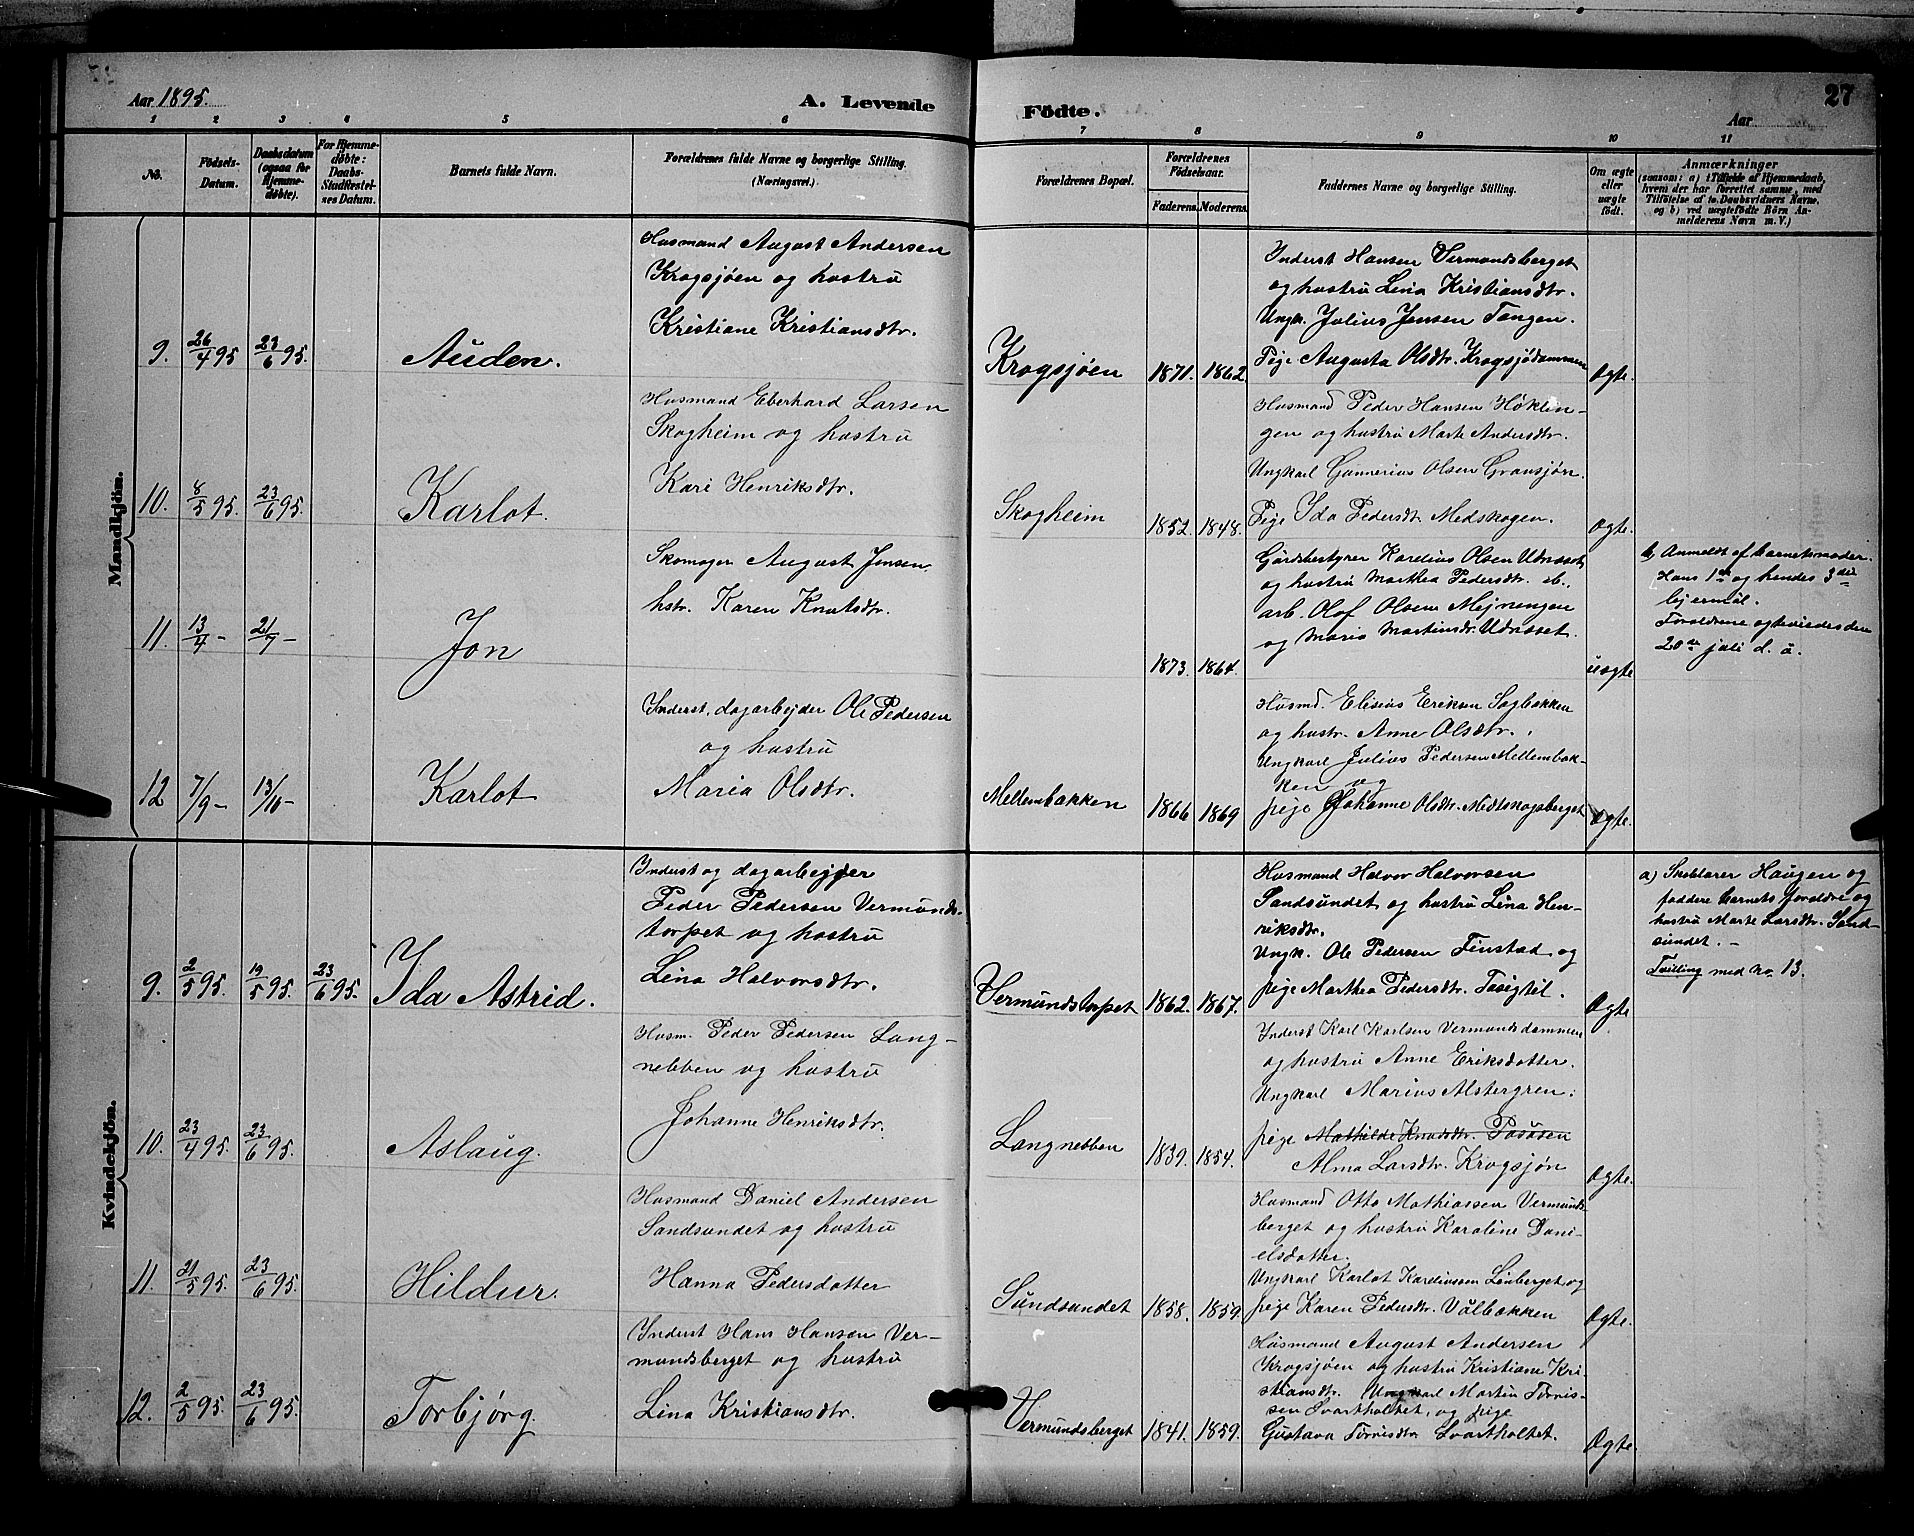 Aar 1895.
A. Levende Födte.
27
Aar
1 2 3 4 5 6 7 8 9 10 11
No.
Födsels-Datum.
Daabsdatum (ogsaa for Hjemmedöbte).
For Hjemmedöbte: Daabs-Stadfæstelses Datum.
Barnets fulde Navn.
Forældrenes fulde Navne og borgerlige Stilling. (Næringsvei.)
Forældrenes Bopæl.
Forældrenes Födselsaar.
Faderens. Moderens.
Faddernes Navne og borgerlige Stilling.
Om ægte eller uægte födt.
Anmærkninger
(saasom: a) i Tilfælde af Hjemmedaab, hvem der har forrettet samme, med Tilföielse af to Daabsvidners Navne. og b) ved uægtefödte Börn Anmelderens Navn m. V.)
Mandkjön.
9. 26/4 95 23/6 95. Auden.
Husmand August Andersen
Krogsjöen og hustru
Kristiane Kristiansdtr.
Krogsjöen 1871. 1862
Inderst Hansen Vermundsberget
og hustru Lina Kristiansdtr.
Ungk. Julius Jensen Tangen.
Pige Augusta Olsdtr. Krogsjödammen
Ægte.
10. 8/5 95. 23/6 95. Karlot.
Husmand Eberhard Larsen
Skogheim og hustru
Kari Henriksdtr.
Skogheim 1852. 1848.
Husmand Peder Hansen Höklin-
gen og hustru Marte Andersdtr.
Ungkarl Gunnerius Olsen Gransjön.
Pige Ida Pedersdt. Medskogen.
Ægte.
11. 13/4 - 21/7 - Jon
Skomager August Jensen
hstr. Karen Knutsdtr.
1873. 1864.
Gårdsbestyrer Karelius Olsen Udnæset
og hustru Marthea Pedersdtr. eb..
arb. Olof Olsen Mejnengen
og Maria Martinsdr. Udnæset.
uægte
b, Anmeldt af barnets moder.
Hans 1ste og hendes 3die
lejermål.
Foreldrene ægteviedes den
20de juli d. å.
12 7/9 - 13/10 - Karlot
Inderst, dagarbejder Ole Pedersen
og hustru
Maria Olsdtr.
Mellembakken 1866 1869
Husmd. Elisius Eriksen Sagbakken
og hustr. Anne Olsdtr.,
Ungkarl Julius Pedersen Mellembak-
ken og
pige Johanne Olsdtr. Medtskogsberget
Ægte.
Kvindekjön.
9. 2/5 95. 19/5 95. 23/6 95. Ida Astrid.
Inderst og dagarbejder
Peder Pedersen Vermunds-
torpet og hustru
Lina Halvorsdtr.
Vermundstorpet 1862. 1867.
Husmand Halvor Halvorsen
Sandsundet og hustru Lina Hen-
riksdtr.
Ungk. Ole Pedersen Finstad og
pige Marthea Pedersdtr. Tasigtil.
Ægte
a) Skolelærer Haugen og
faddere barnets foreldre og
hustru Marte Larsdtr. Sand-
sundet. -
Tvilling med no. 13.
10. 23/4 95. 23/6 95. Aslaug.
Husm. Peder Pedersen Lang-
nebben og hustru
Johanne Henriksdtr.
Langnebben 1839. 1854.
Inderst Karl Karlsen Vermundsdammen
og hustru Anne Eriksdatter.
Ungkarl Marius Alstergren.
pige Mathilde Knudsdtr. Posåsen
Alma Larsdtr. Krogsjön
Ægte.
11. 21/5 95. 23/6 95. Hildur.
Husmand Daniel Andersen
Sandsundet og hustru
Hanna Pedersdatter
Sandsundet 1858. 1859.
Husmand Otto Mathiassen Vermunds
berget og hustru Karoline Dani-
elsdatter.
Ungkarl Karlot Kareliussen Linberget og
pige Karen Pedersdtr. Välbakken
Ægte.
12. 2/5 95. 23/6 95. Torbjörg.
Inderst Hans Hansen Ver-
mundsberget og hustru
Lina Kristiansdtr.
Vermundsberget 1841. 1859.
Husmand August Andersen
Krogsjöen og hustru Kristiane Kri-
stiansdtr. Ungkarl Martin Törris-
sen Svartholtet, og pige
Gustava Törrisdtr Svartholtet.
Ægte.